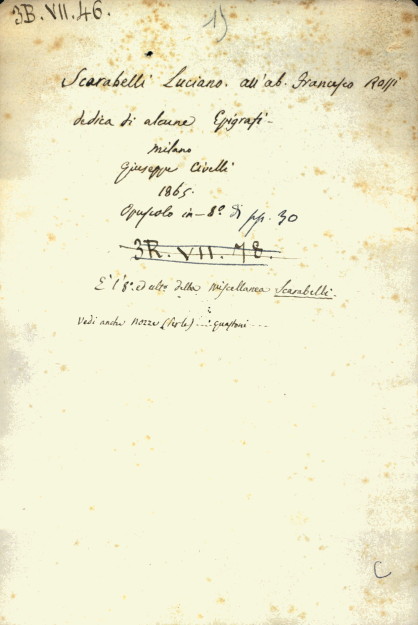 3B. VII. 46.
15
Scarabelli Luciano. all'ab. Francesco Rossi
dedica di alcune Epigrafi-
Milano
Giuseppe Civelli
1865.
Opuscolo in-8º di pp. 30
3R. VII. 78.
È l'8º ed ulto della Miscellanea Scarabelli.
Vedi anche Nozze
C